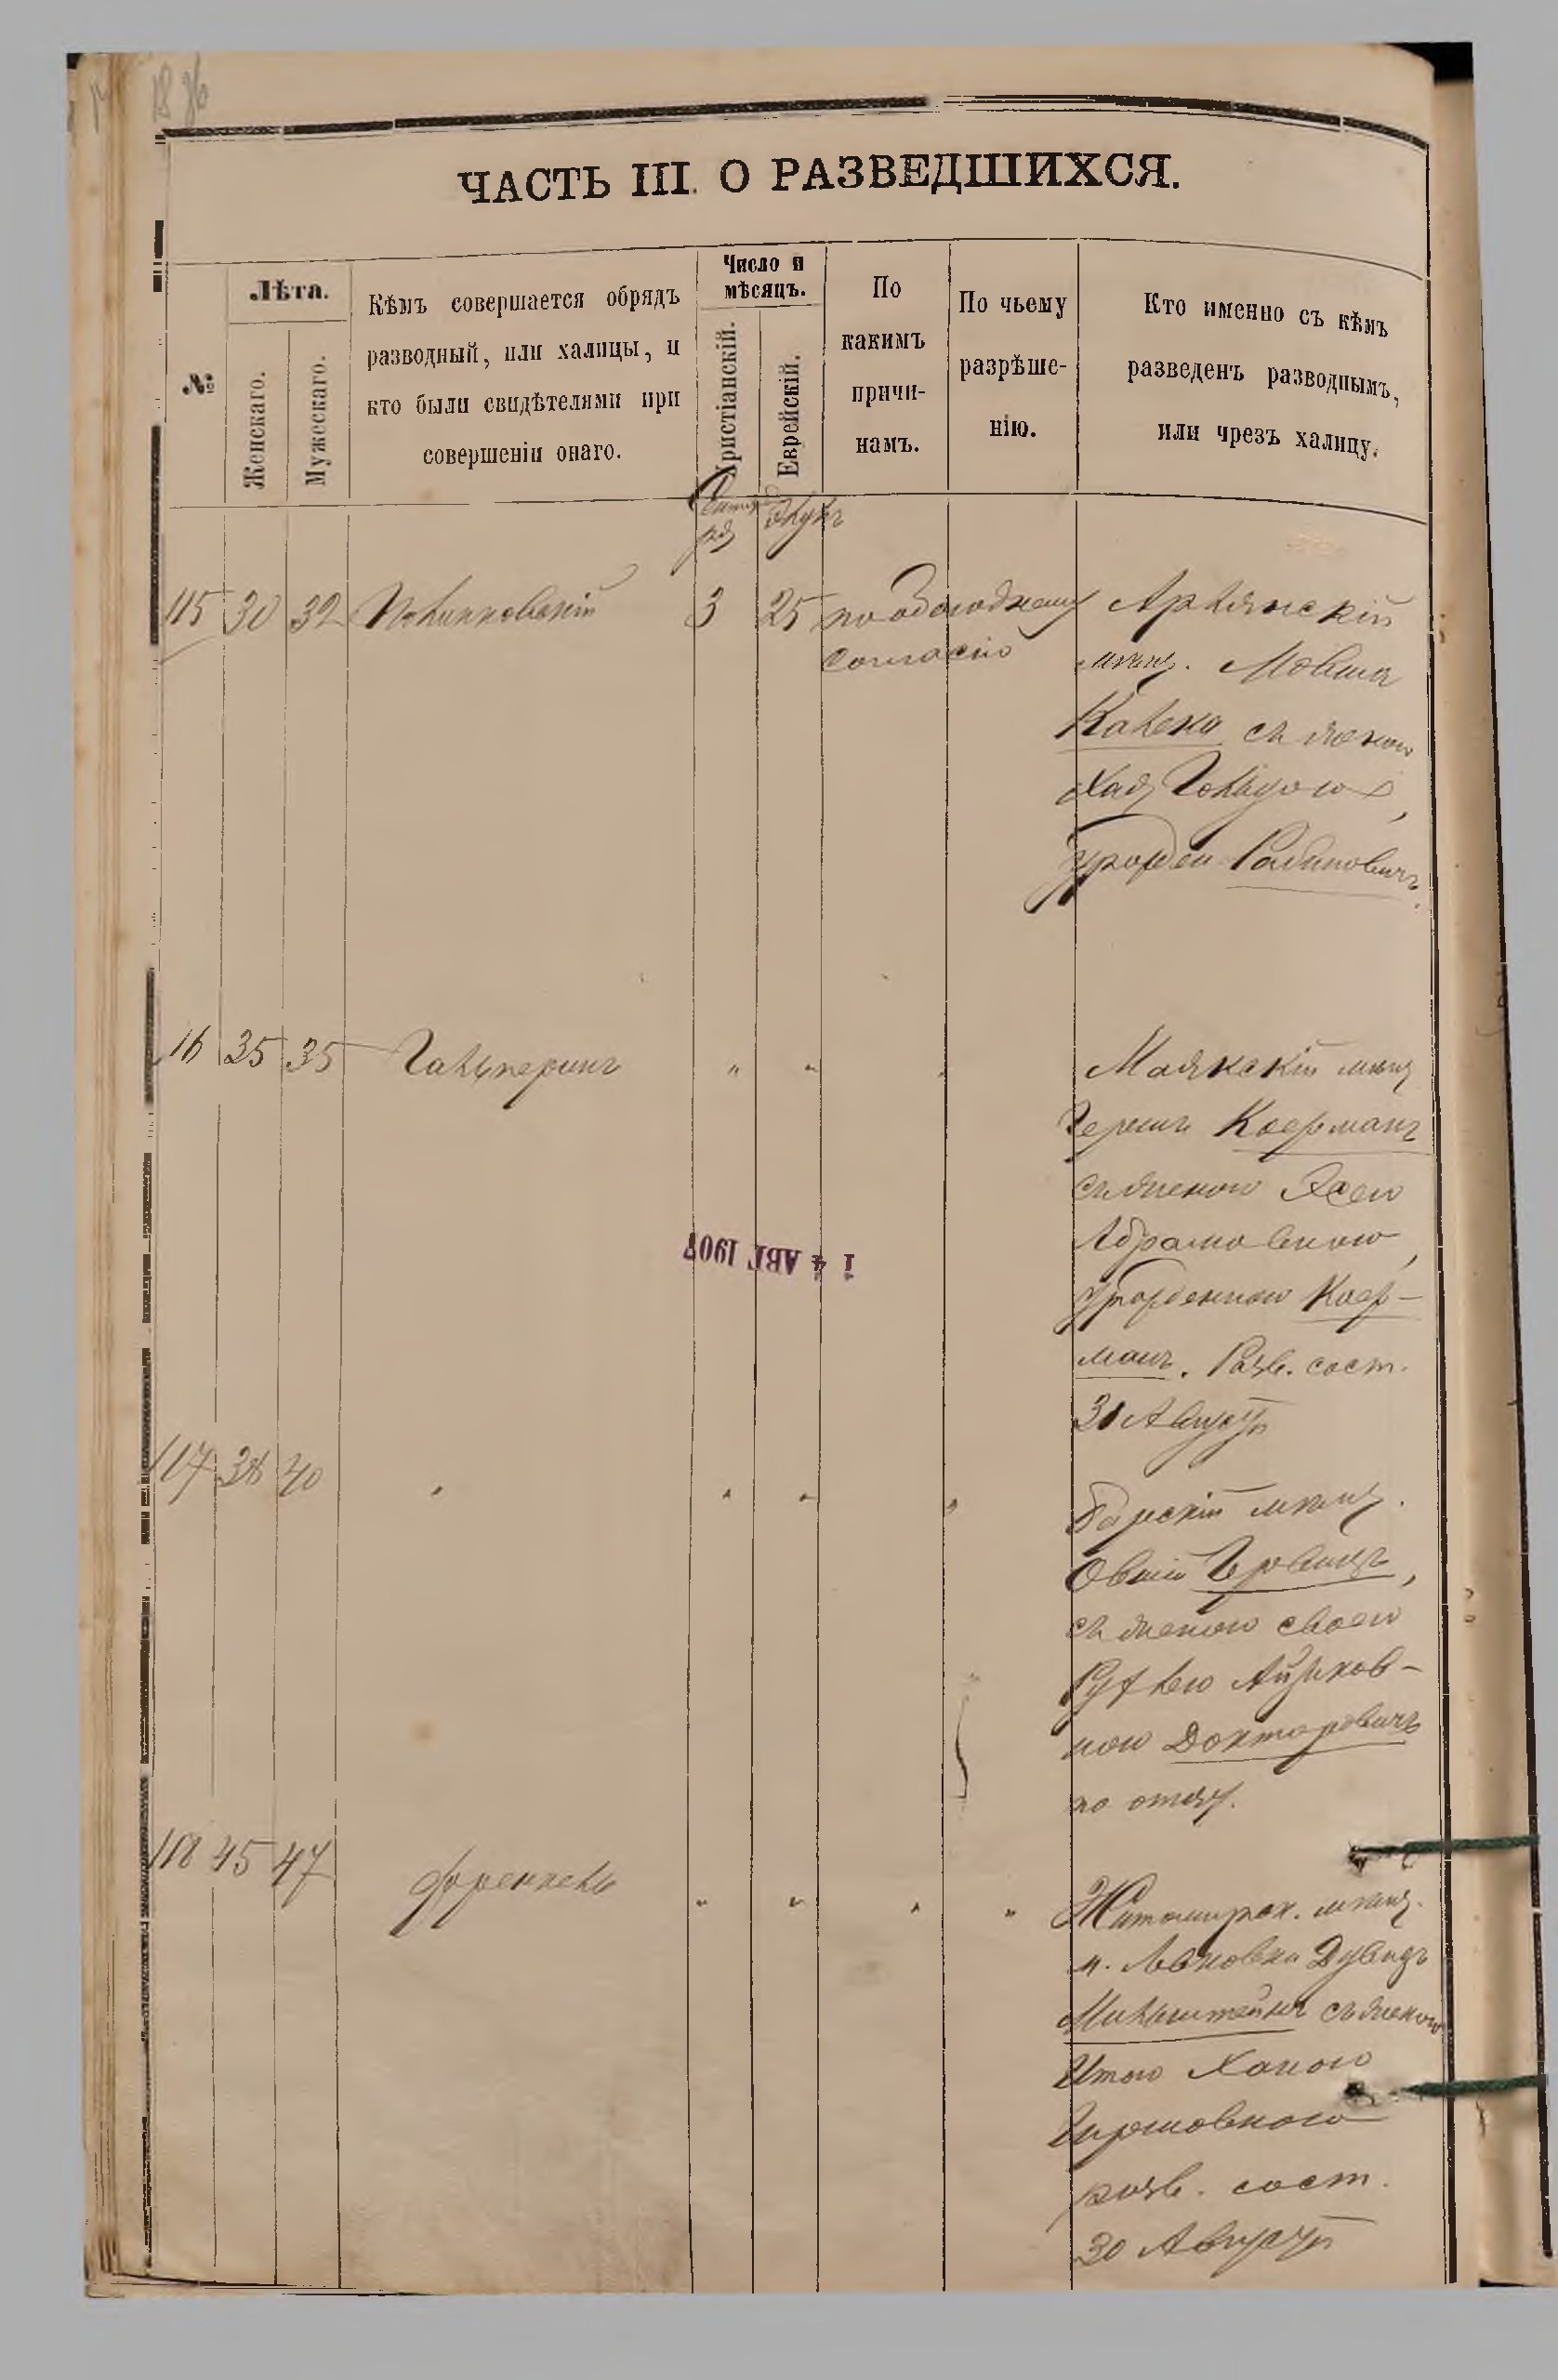 18 86
ЧАСТЬ III. О РАЗВЕДШИХСЯ.
№
Лѣта.
Женскаго.
Мужескаго.
Кѣмъ совершается обрядъ
разводный, или халицы, и
кто были свидѣтелями при
совершеніи онаго.
Число и
мѣсяцъ.
Христіанскій.
Еврейскій.
По
какимъ
причи-
намъ.
По чьему
разрѣше-
нію.
Кто именно съ кѣмъ
разведенъ разводнымъ,
или чрезъ халицу.
Сентяб
ря
Элулъ
115 30 32 3 25 по обоюдному
согласію
мѣщ. Мовша
съ женою
Хая
урожден Рабиновичъ
16 35 35 Гальперинъ " " "
Маякскій мѣщ
Гершъ Коерманъ
съ женою
Абрамовною,
урожденною Коер-
манъ. Разв. сост.
30 Августа
117 38 40 " " " "
Барскій мѣщ.
Овшій
съ женою своею
Рухлею Айзиков-
ною Докторовичъ
по отцу.
118 45 47 Френкель " " " "
Житомирск. мѣщ.
м. Дувидъ
Мильштейнъ съ женою
Итою Ханою
Гершовною
разв. сост.
30 Августа
14 АВГ 1907